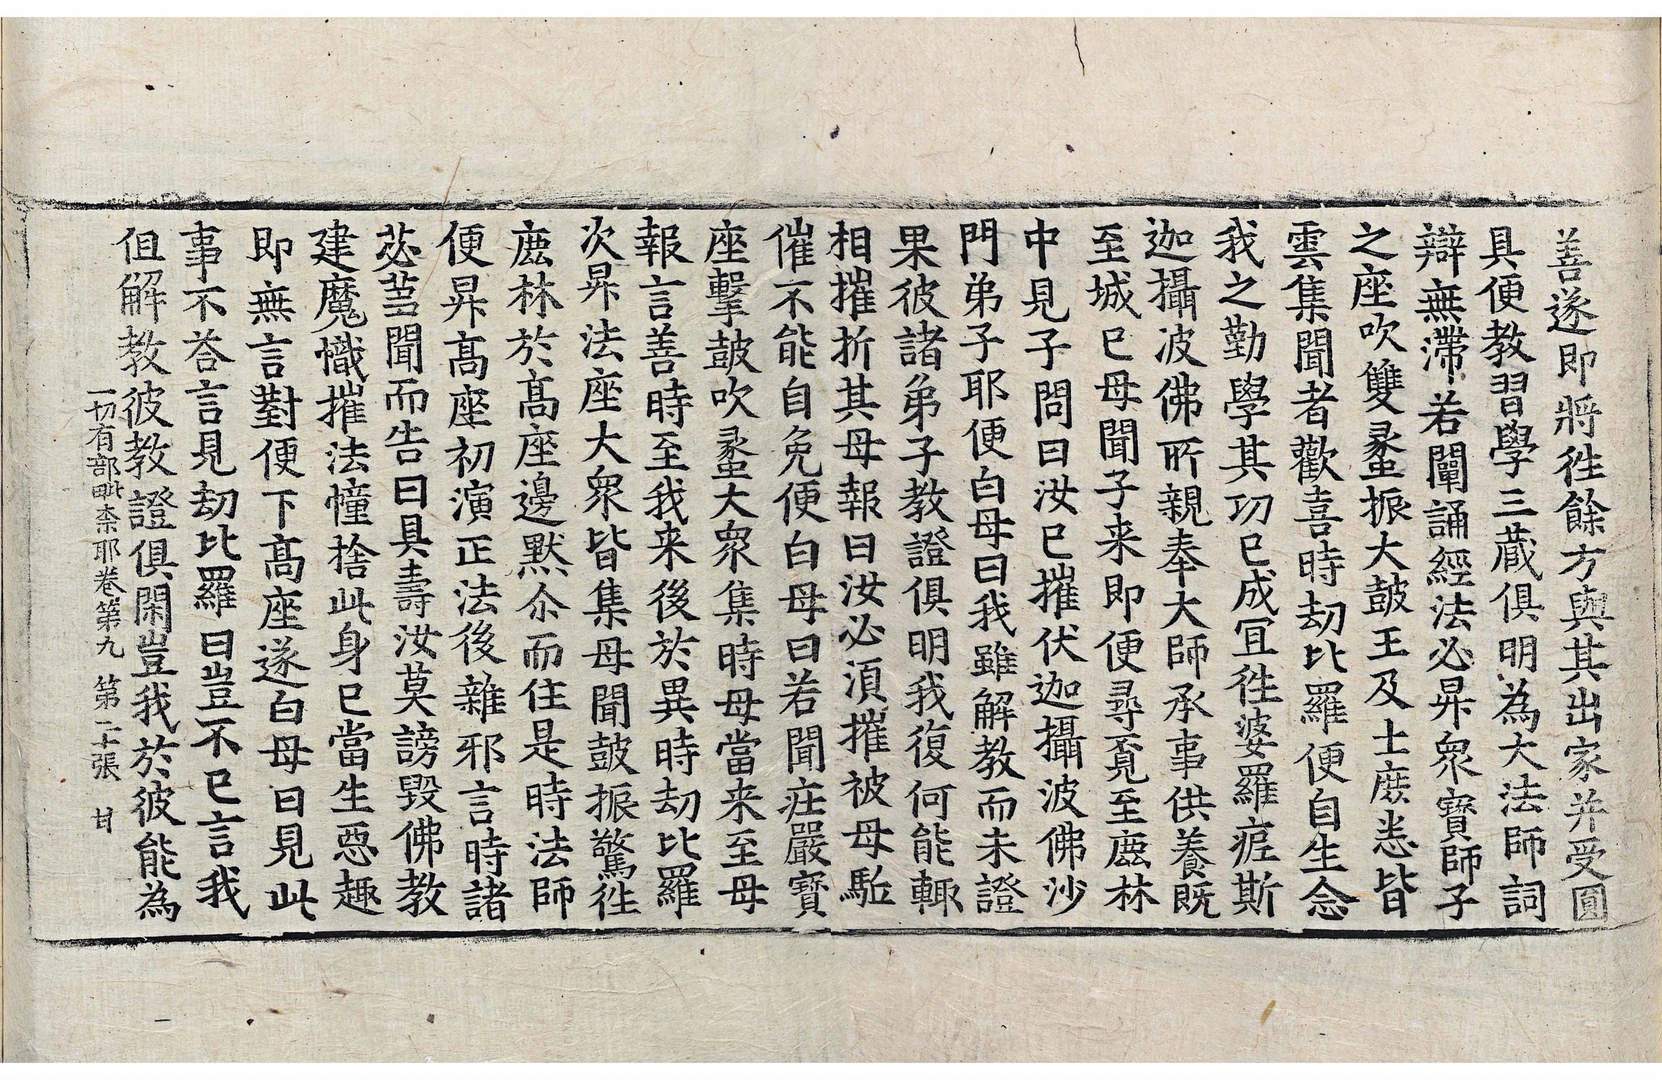 善遂即將徃餘方與其出家并受圓
具便教習學三藏俱明為大法師詞
辯無滯若闡誦經法必昇衆寶師子
之座吹雙蠡振大鼓王及士庶悉皆
雲集聞者歡喜時劫比羅便自生念
我之勤學其功已成冝徃婆羅痆斯
迦攝波佛所親奉大師承事供養既
至城已母聞子来即便尋覔至鹿林
中見子問曰汝已摧伏迦攝波佛沙
門弟子耶便白母曰我雖解教而未證
果彼諸弟子教證俱明我復何能輙
相摧折其母報曰汝必湏摧被母駈
催不能自免便白母曰若聞莊嚴寶
座擊鼓吹蠡大衆集時母當来至母
報言善時至我来後於異時劫比羅
次昇法座大衆皆集母聞鼓振驚徃
鹿林於髙座邊默尒而住是時法師
便昇髙座初演正法後雜邪言時諸
苾芻聞而告曰具壽汝莫謗毀佛教
建魔幟摧法幢捨此身已當生惡趣
即無言對便下髙座遂白母曰見此
事不荅言見劫比羅曰豈不已言我
但解教彼教證俱閑豈我於彼能為
一切有部毗柰耶卷第九 第二十張 甘